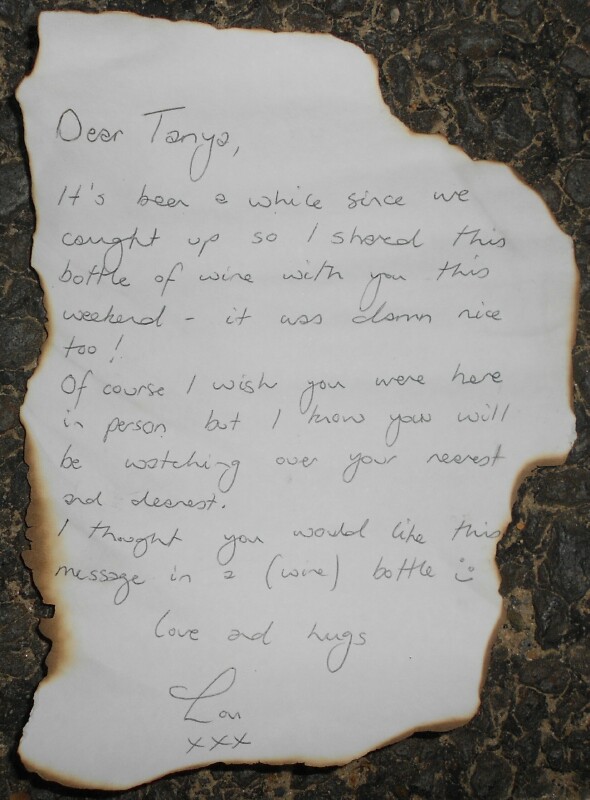 Dear Tanya,
It's been a while since we
caught up so I shared this
bottle of wine with you this
weekend - it was damn nice
too!
Of course I wish you were here
in person but I know you will
be watching over your nearest
and dearest.
I thought you would like this
message in a (wine) bottle :)
love and hugs
Lou
xxx